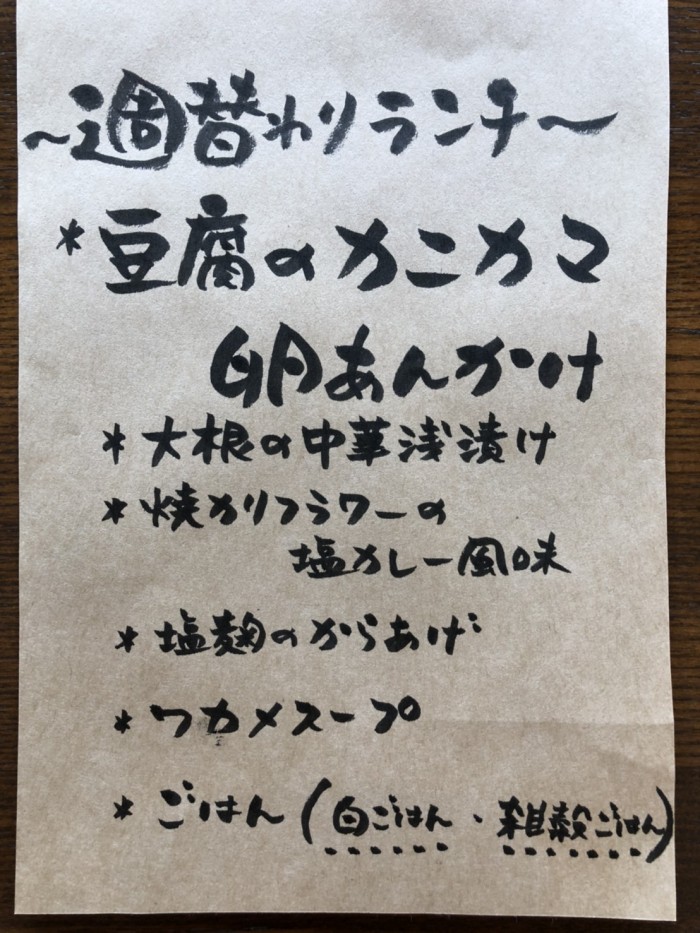 ～週替わりランチ～
*豆腐のカニカマ
卵あんかけ
*大根の中華浅漬け
*焼カリフラワーの
塩カレー風味
*塩麹のからあげ
*ワカメスープ
*ごはん(白ごはん・雑穀ごはん)